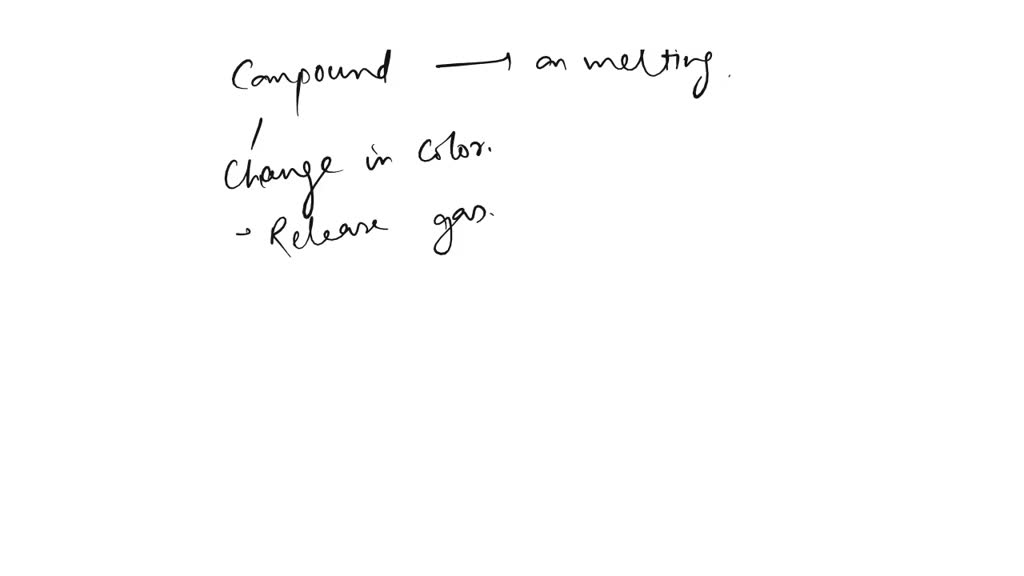 Compound → on melting.
Change in color.
→ Release gas.